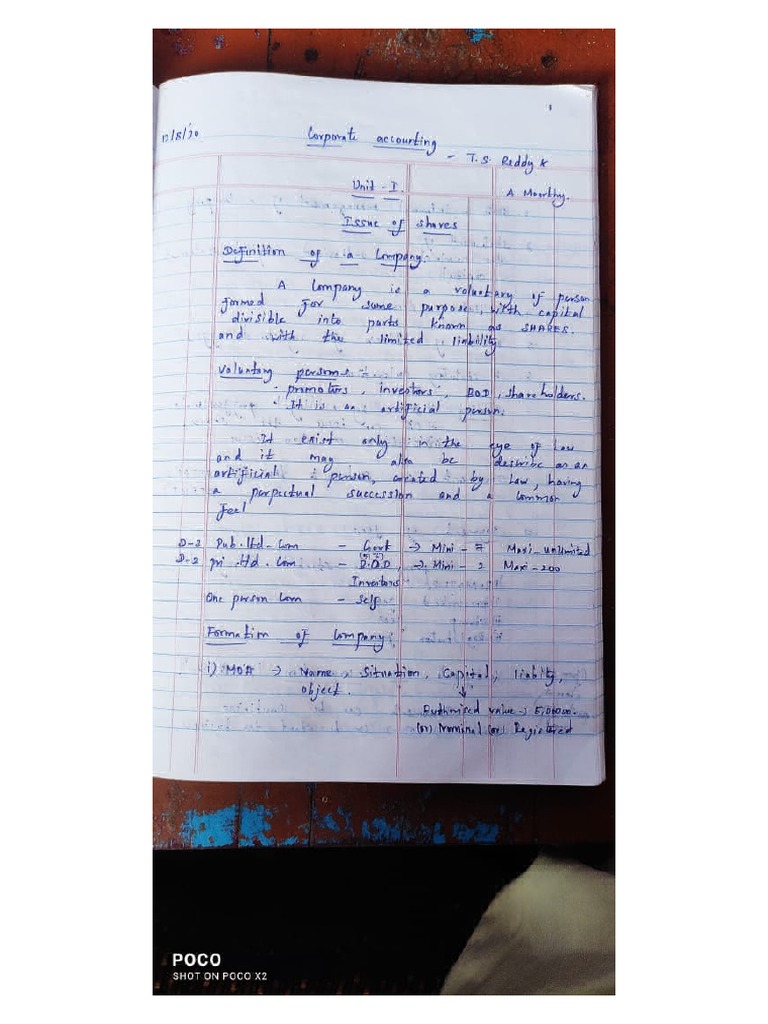 1
12/8/20 Corporate accounting
- T.S. Reddy &
Unit - I. A Moorthy.
Issue of shares
Definition of a Company.
A Company is a voluntary of person
formed for some purpose, with capital
divisible into parts known as SHARES.
and with the limited liability
Voluntary persons
promotors, investors, BOD, shareholders.
It is an artificial person.
It exist only in the eye of Law
and it may also be describe as an
artificial person, created by Law, having
a perpetual succession and a common
feel
Pub. ltd - Com - Govt → Mini - 7 Maxi - unlimited
D-2 pri. ltd. Com - B.O.D, → Mini - 2 Maxi - 200
Invertors
One person Com - Self
Formation of Company
i) MOA → Name, Situation, Capital, liablity,
object. ↓
Euthorised value →
(or) Nominal (or) Registered
POCO
SHOT ON POCO X2